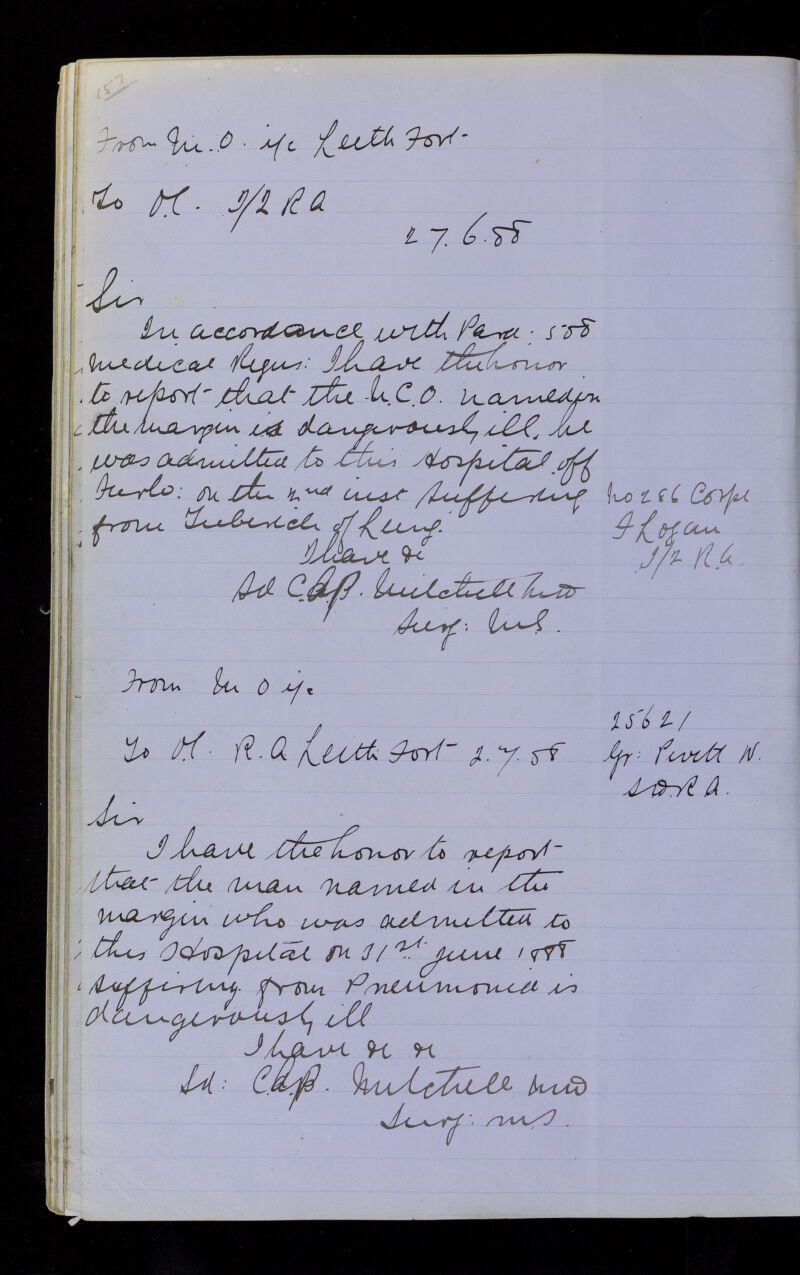 157
From M. O. i/c Leith Fort
To O.C. I/2 R A
27.6.88
Sir
In accordance with Para: 588
medical Regns: I have the honor
to report that the N.C.O. named in
the margin is dangerously ill, he
was admitted to this Hospital off
Furlo: on the 2nd inst suffering
from Tubercle of Lung.
No 286 Corpl
F Logan
I/2 R.A.
I have &c
Sd C.A.P. Mitchell MD
Surg: M.S.
From M O i/c
To O.C. R.A Leith Fort 2.7.88
25621
Gr: Pivett W.
S.D.R A.
Sir
I have the honor to report
that the man named in the
margin who was admitted to
this Hospital on 31st June 1888
suffering from Pneumonia is
dangerously ill
I have &c &c
Sd: C.A.P. Mitchell MD
Surg: M.S.